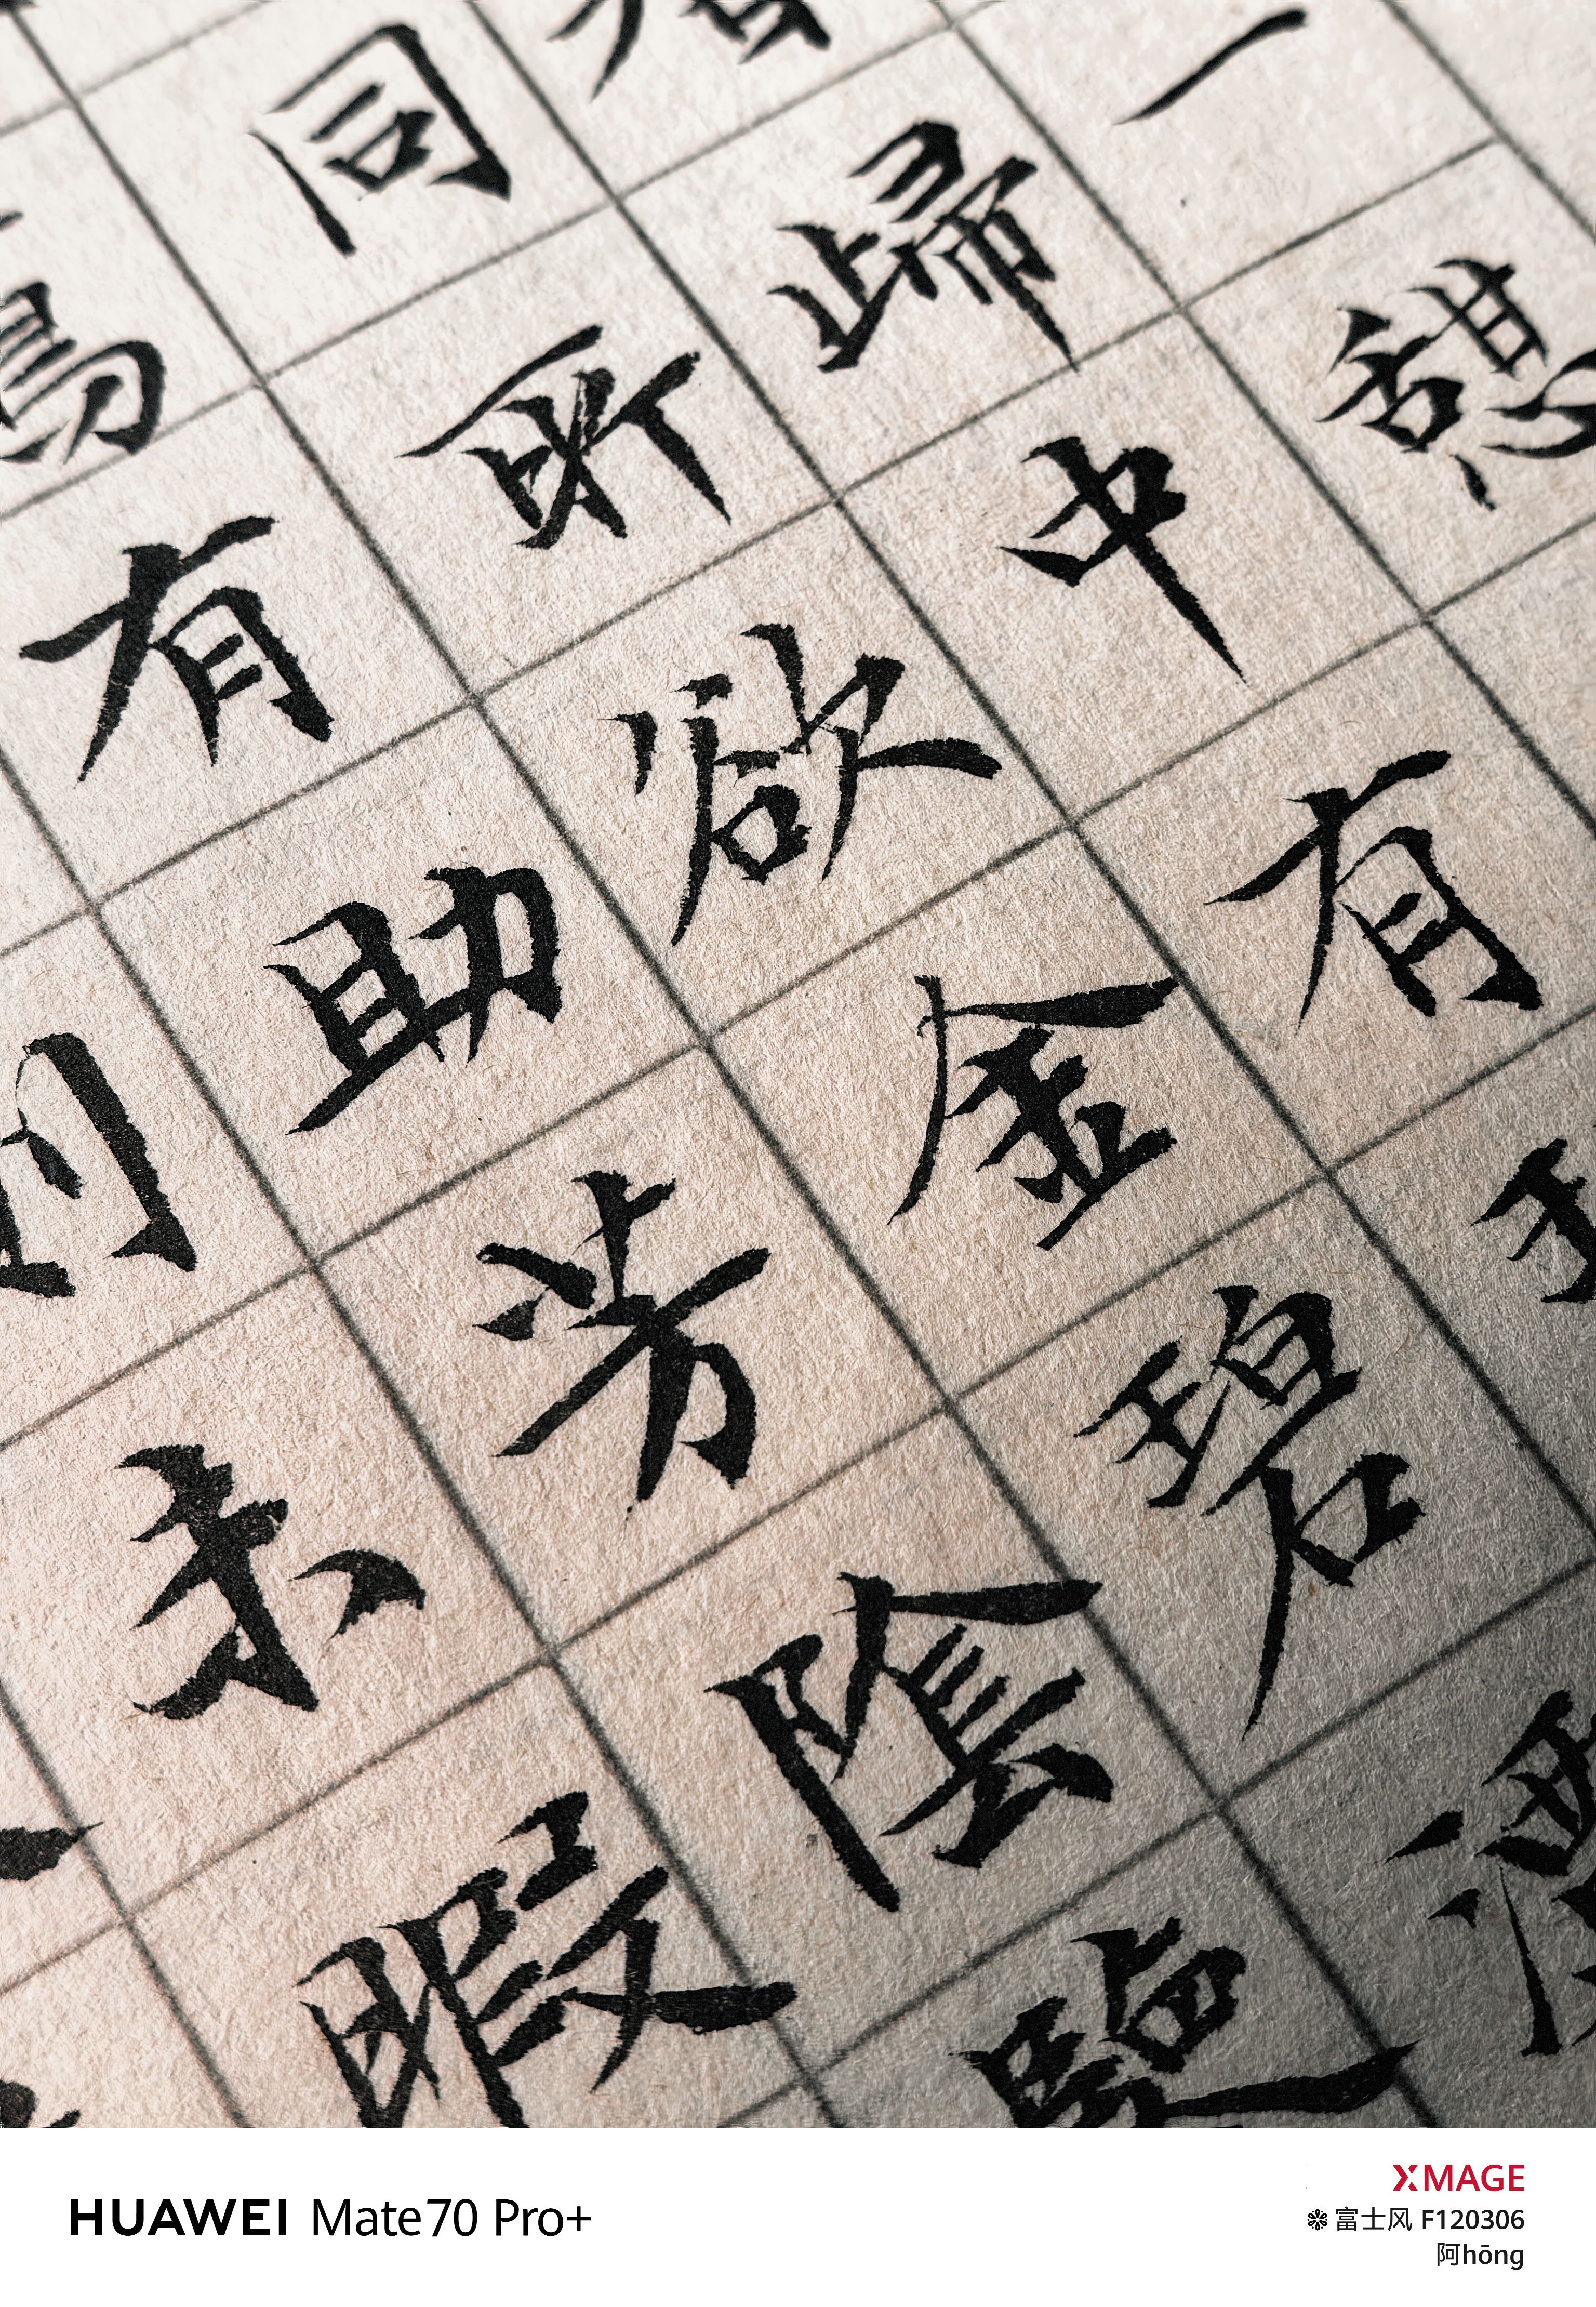 一憩
歸中有
同所欲金碧
有助芳陰
未暇
HUAWEI Mate70 Pro+
XMAGE
富士风 F120306
阿hōng